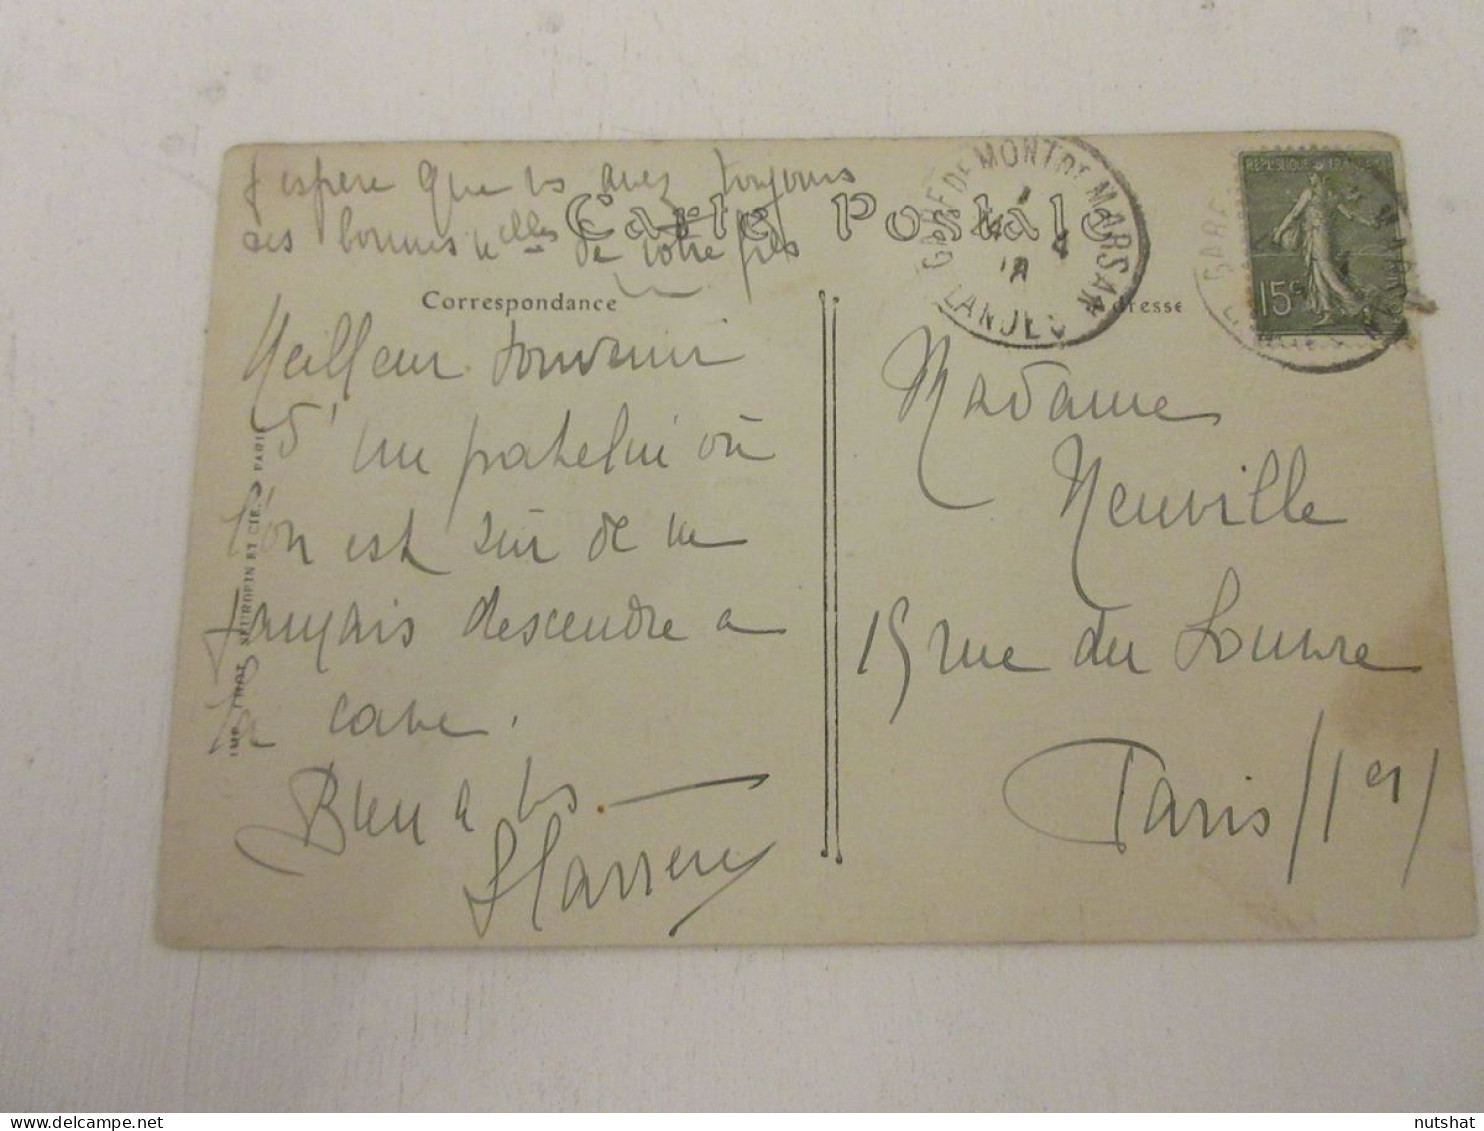 J'espère que vs avez toujours
des bonnes nelles de votre fils
Carte Postale
Correspondance
Adresse
GARE DE MONT DE MARSAN
LANDES
REPUBLIQUE FRANÇAISE
15c
Meilleur souvenir
d'un patelin où
l'on est sûr de ne
jamais descendre à
la cave.
Bien à vs
Madame
Neuville
15 rue du Louvre
Paris (1er)
IMP. PHOT. NEURDEIN ET CIE. PARIS
nutshat